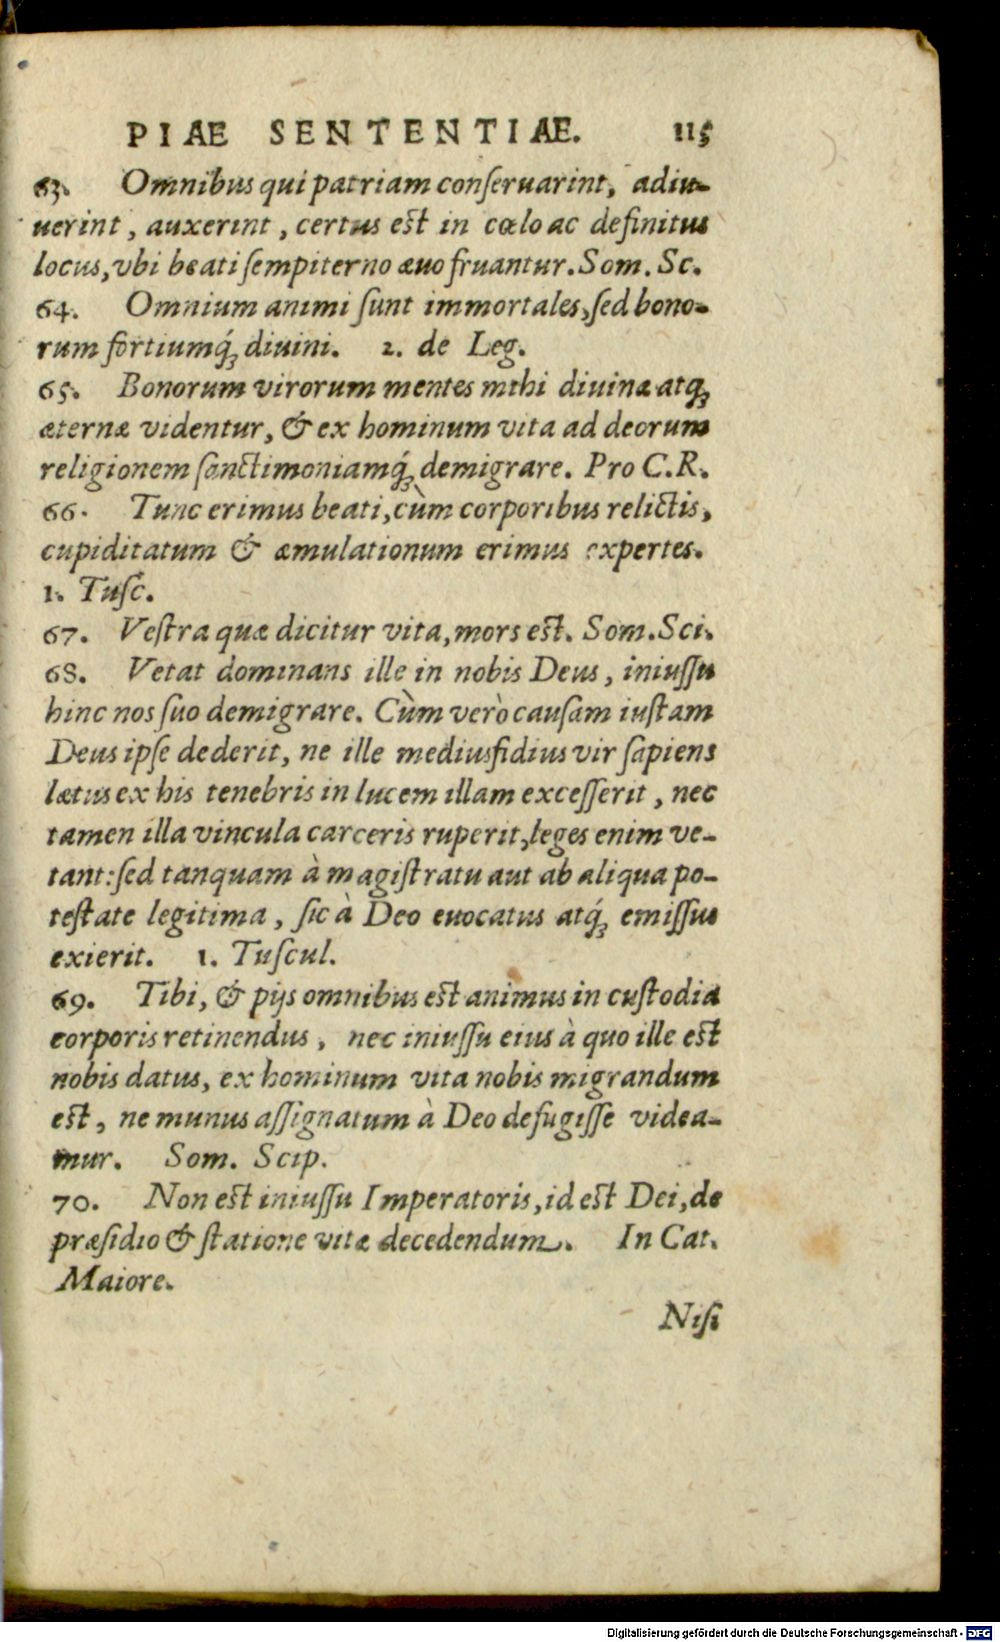 PIAE SENTENTIAE. 115
63. Omnibus qui patriam conſeruarint, adiu-
uerint, auxerint, certus est in cœlo ac definitus
locus, vbi beati ſempiterno æuo fruantur. Som. Sc.
64. Omnium animi ſunt immortales, ſed bono-
rum fortiumq́; diuini. 2. de Leg.
65. Bonorum virorum mentes mihi diuinæ atq;
æternæ videntur, & ex hominum vita ad deorum
religionem ſanctimoniamq́; demigrare. Pro C.R.
66. Tunc erimus beati, cùm corporibus relictis,
cupiditatum & æmulationum erimus expertes.
1. Tuſc.
67. Veſtra quæ dicitur vita, mors est. Som. Sci.
68. Vetat dominans ille in nobis Deus, iniuſſu
hinc nos ſuo demigrare. Cùm verò cauſam iuſtam
Deus ipſe dederit, ne ille mediusfidius vir ſapiens
lætus ex his tenebris in lucem illam exceſſerit, nec
tamen illa vincula carceris ruperit, leges enim ve-
tant: ſed tanquam à magiſtratu aut ab aliqua po-
teſtate legitima, ſic à Deo euocatus atq́; emiſſus
exierit. 1. Tuſcul.
69. Tibi, & pijs omnibus est animus in cuſtodia
corporis retinendus, nec iniuſſu eius à quo ille est
nobis datus, ex hominum vita nobis migrandum
est, ne munus aſſignatum à Deo defugiſſe videa-
mur. Som. Scip.
70. Non est iniuſſu Imperatoris, id est Dei, de
præſidio & ſtatione vitæ decedendum. In Cat.
Maiore.
Niſi
Digitalisierung gefördert durch die Deutsche Forschungsgemeinschaft - DFG